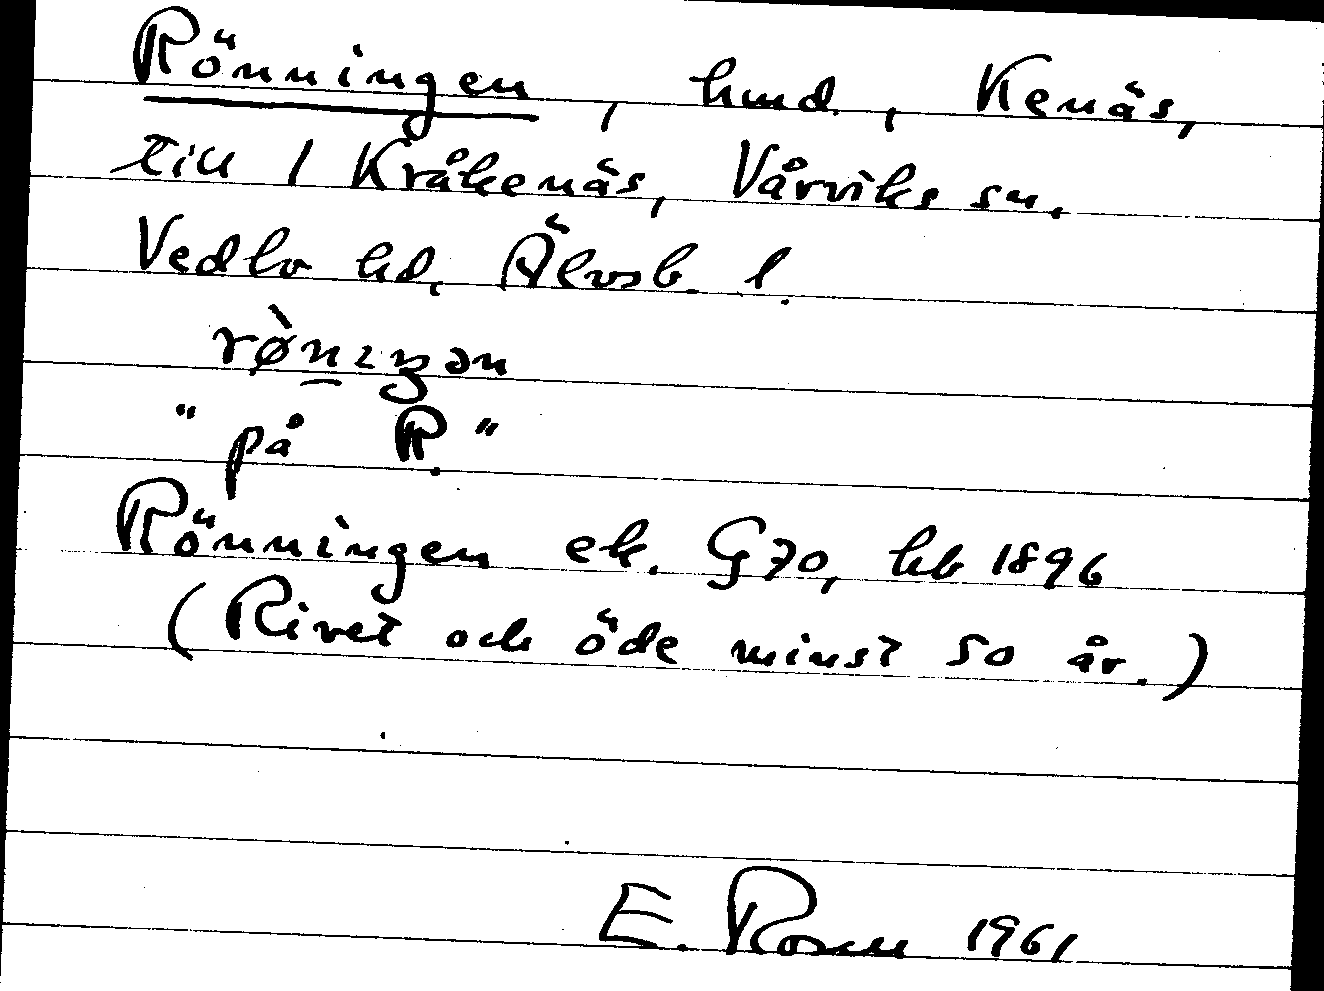 Rönningen, hmd., Kenäs,
till 1 Kråkenäs, Vårviks sn.
Vedbo hd, Älvsb. l.
rø̀nıŋən
"på R."
Rönningen ek. G70, hb 1896
(Rivet och öde minst 50 år.)
E. Rosen 1961